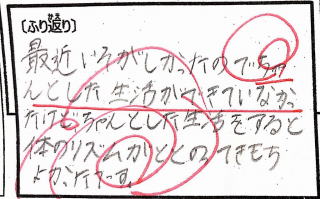 〔ふり返り〕
最近いそがしかったのでちゃ
んとした生活ができていなかっ
たけど、ちゃんとした生活をすると
体のリズムがととのってきもち
よかったです。